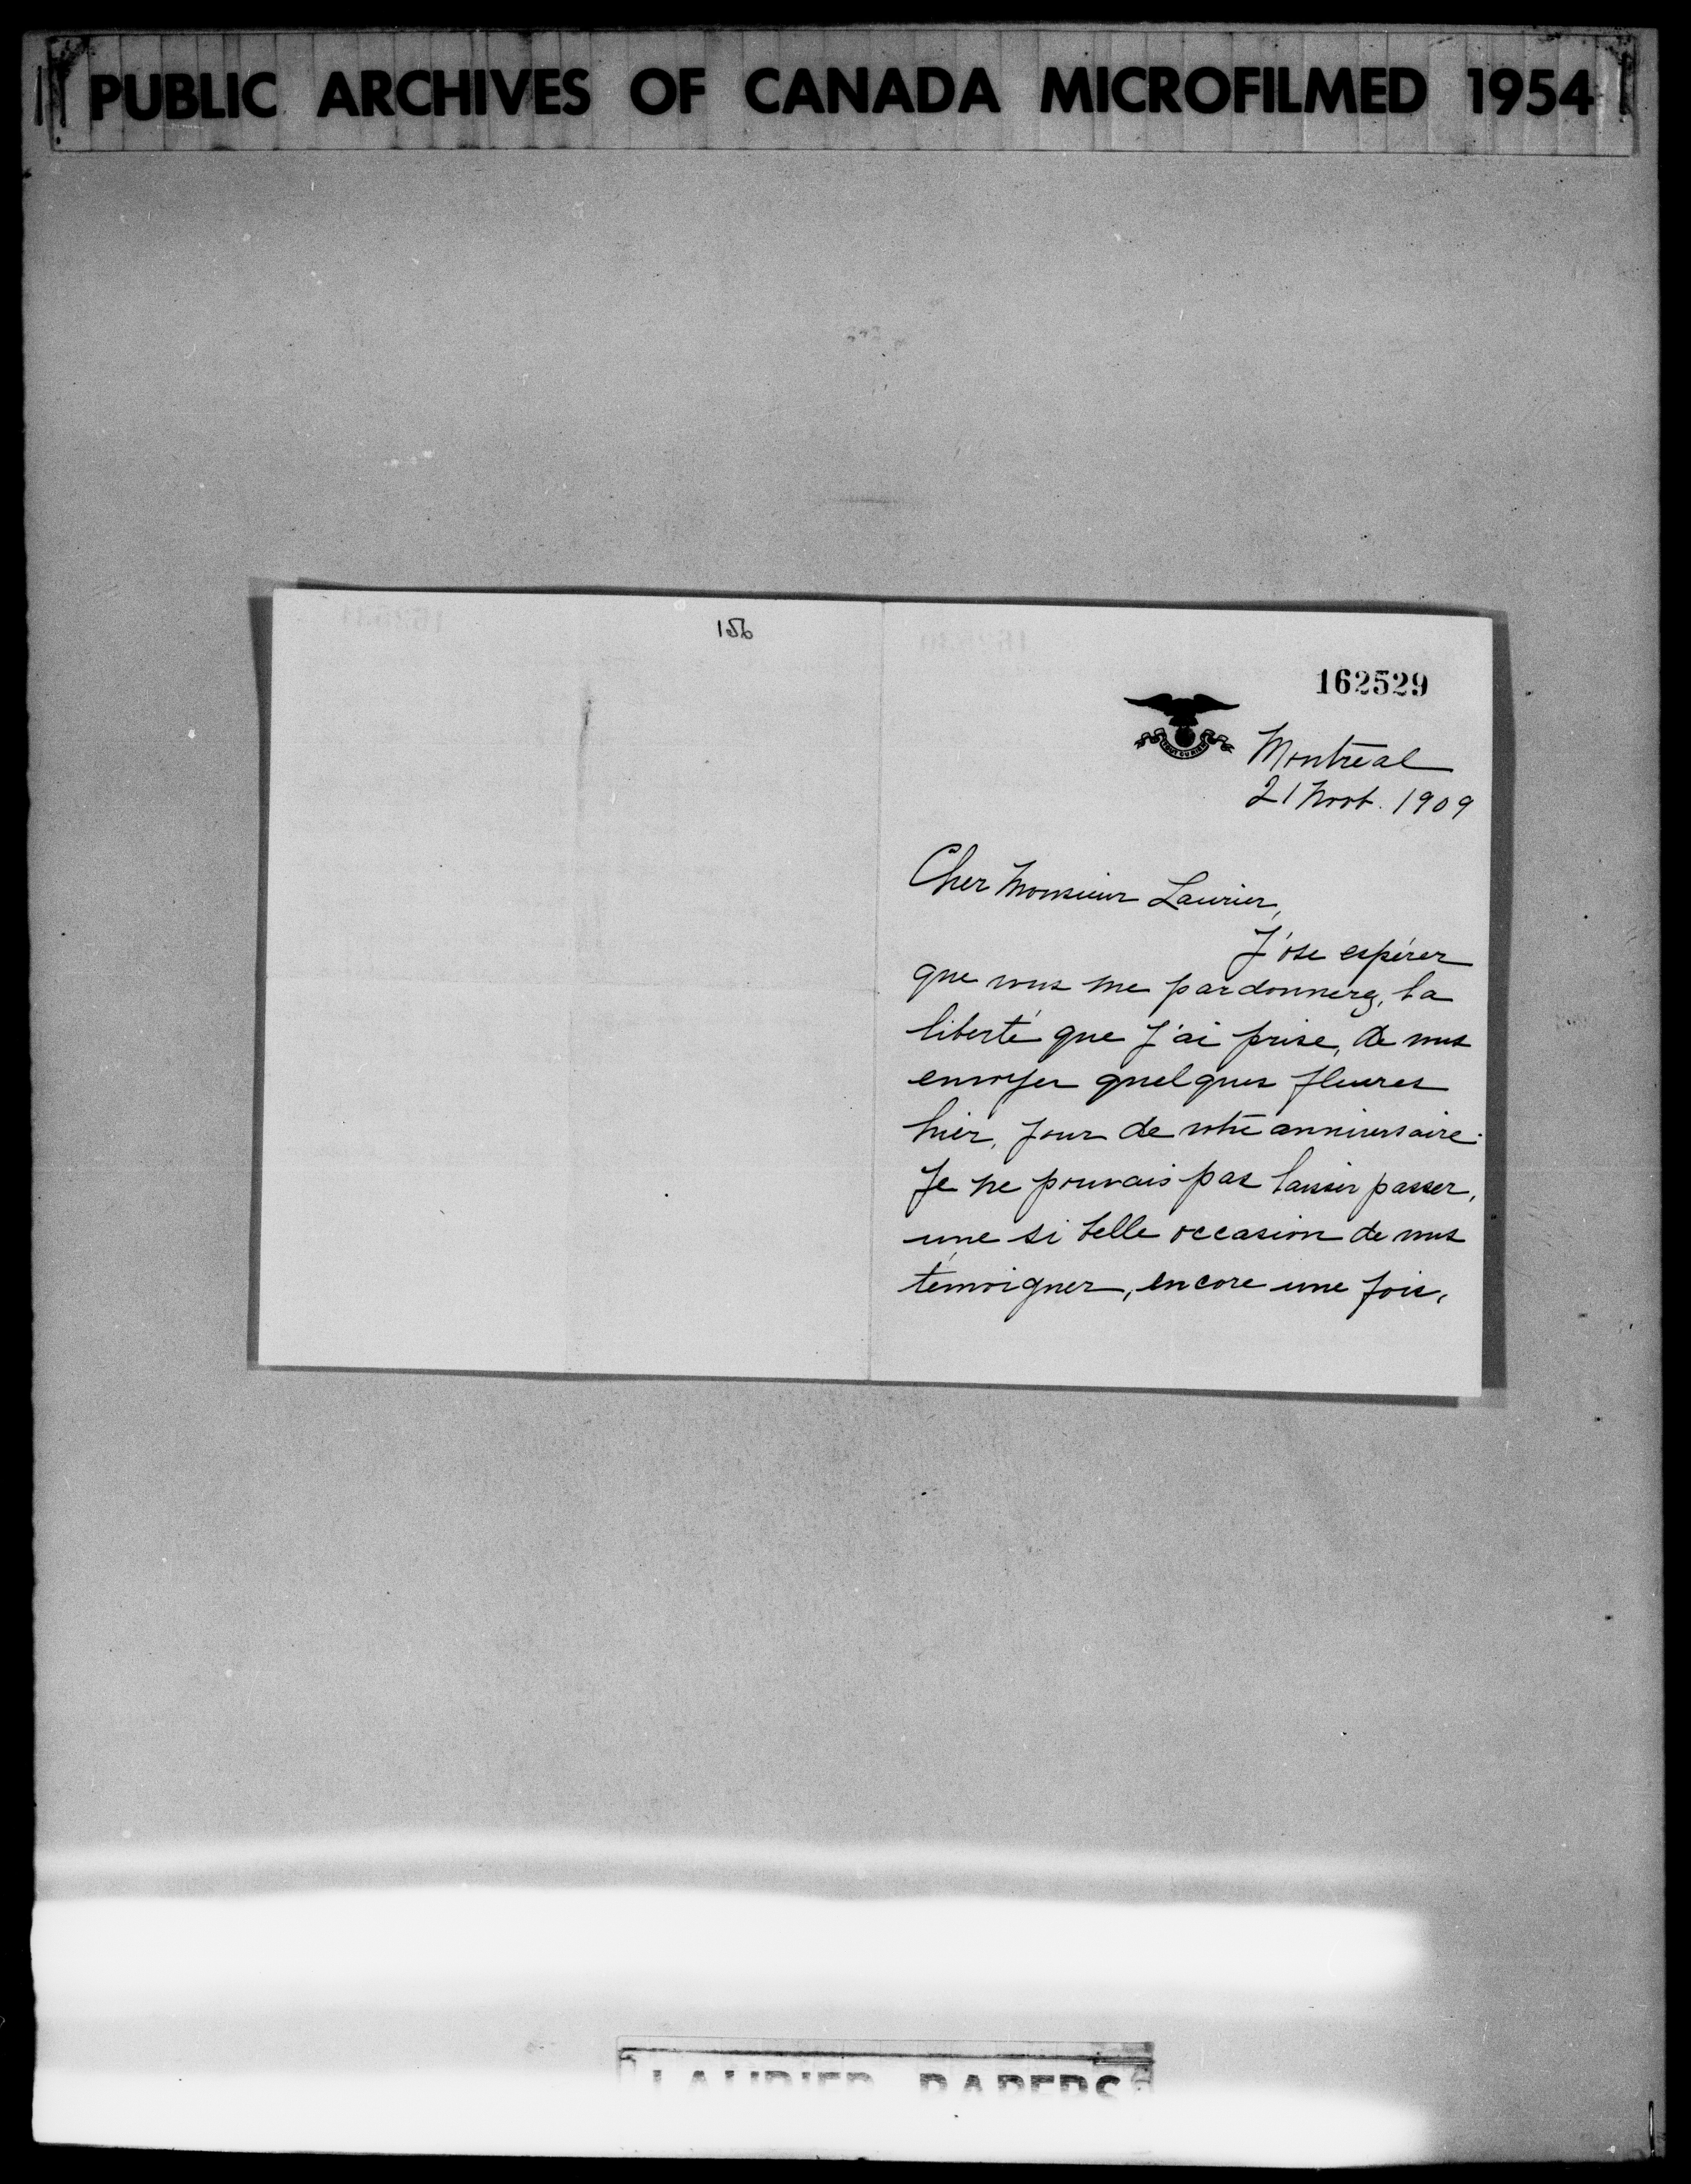 PUBLIC ARCHIVES OF CANADA MICROFILMED 1954
156
162529
TOUT OU RIEN
Montreal
21 Novb. 1909
Cher Monsieur Laurier,
J'ose espérer
que vous me pardonnerez, la
liberté que j'ai prise, de vous
envoyer quelques fleures
hier, jour de votre anniversaire.
Je ne pouvais pas laisser passer,
une si belle occasion de vous
témoigner, encore une fois,
LAURIER PAPERS